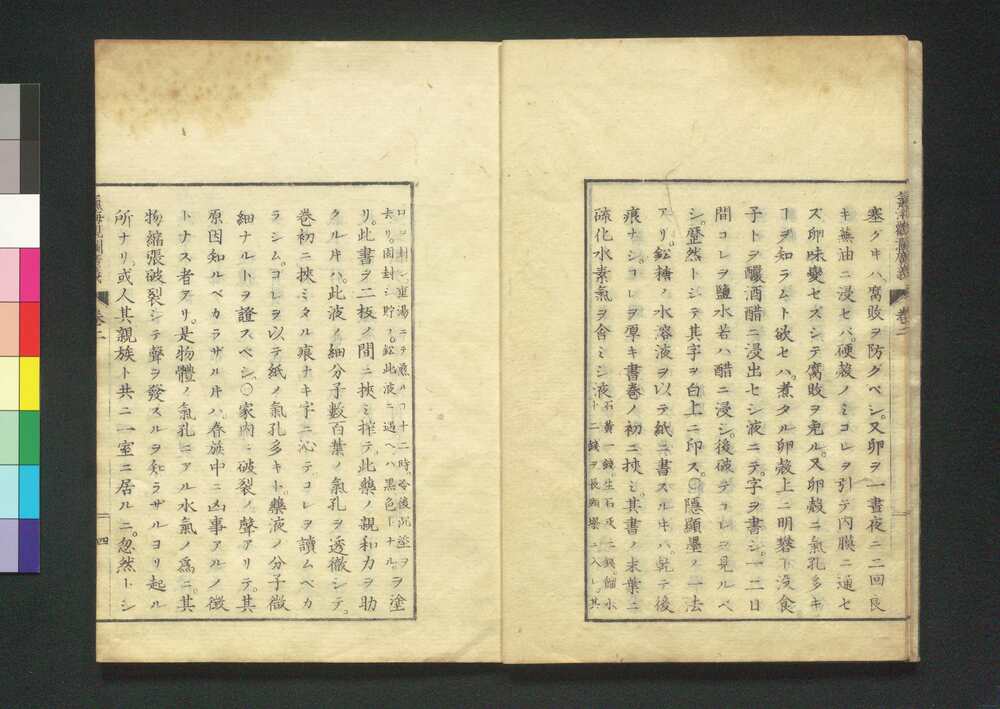 塞グキハ腐敗ヲ防グベシ。又卵ヲ一晝夜ニ二回艮
キ蕪油ニ浸セバ。硬殼ノミコレヲ引テ内膜ニ通セ
ズ卵味變セズシテ腐敗ヲ免ル。又卵殼ニ氣孔多キ
ーヲ知ラムト欲セハ。煮タル卵殼上ニ明礬ト沒食
子トヲ釀酒醋ニ浸出セシ液ニテ。字ヲ書シ。一二日
間コレヲ鹽水若ハ醋ニ浸シ。後破テコレヲ見ルベ
シ。歴然トシテ其字ヲ白上ニ印ス。〇隱顯墨ノ一法
アリ。鉛糖ノ水溶液ヲ以テ紙ニ書スルキハ。乾テ後
痕ナシ。コレヲ厚キ書巻ノ初ニ挾ミ。其書ノ末葉ニ
硫化水素氣ヲ含ミシ液
石黄一錢生石灰二錢餾水
ト二錢ヲ長頸壜ニ入レ。其
巻二
口ヲ封シ重湯ニテ煮ルコ十二時。冷後沉
去リ。固封シ貯ノ。鉛此液ニ遇ヘハ黑色トナル。
ヲ塗
リ。此書ヲ二板ノ間ニ挾ミ搾テ。此藥ノ親和力ヲ助
クルキハ。此液ノ細分子數百葉ノ氣孔ヲ透徹シテ。
巻初ニ挾ミタル痕ナキ字ニ沁テコレヲ讀ムベカ
ラシム。コレヲ以テ紙ノ氣孔多キト。藥液ノ分子微
細ナルトヲ證スベシ。〇家内ニ破裂ノ聲アリテ。其
原因知ルベカラザルキハ。春族中ニ凶事アルノ徴
トナス者アリ。是物體ノ氣孔ニアル水氣ノ爲ニ。其
物縮張破裂シテ聲ヲ發スルヲ知ラザルヨリ起ル
所ナリ。或人其親族ト共ニ一室ニ居ルニ。忽然トシ
巻二
四